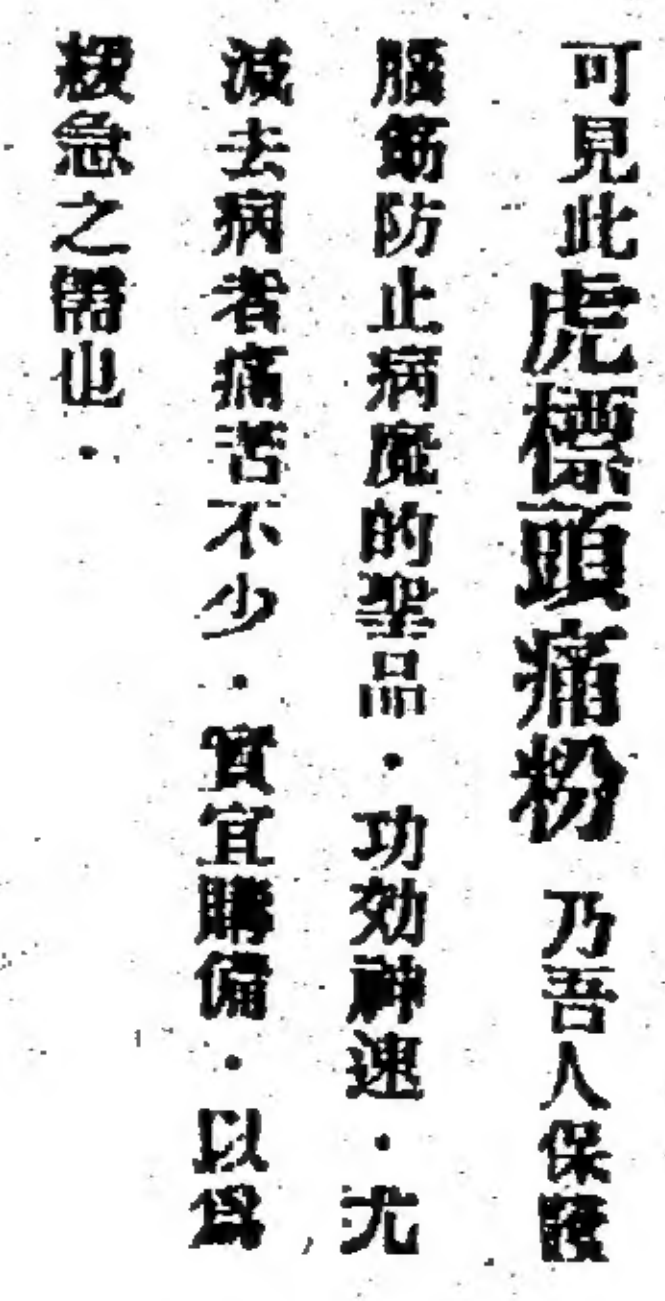 可見此虎標頭痛粉乃吾人保護
腦筋防止病魔的聖品・功効神速・尤
減去病者痛苦不少・實宜購備・以爲
緩急之需也・